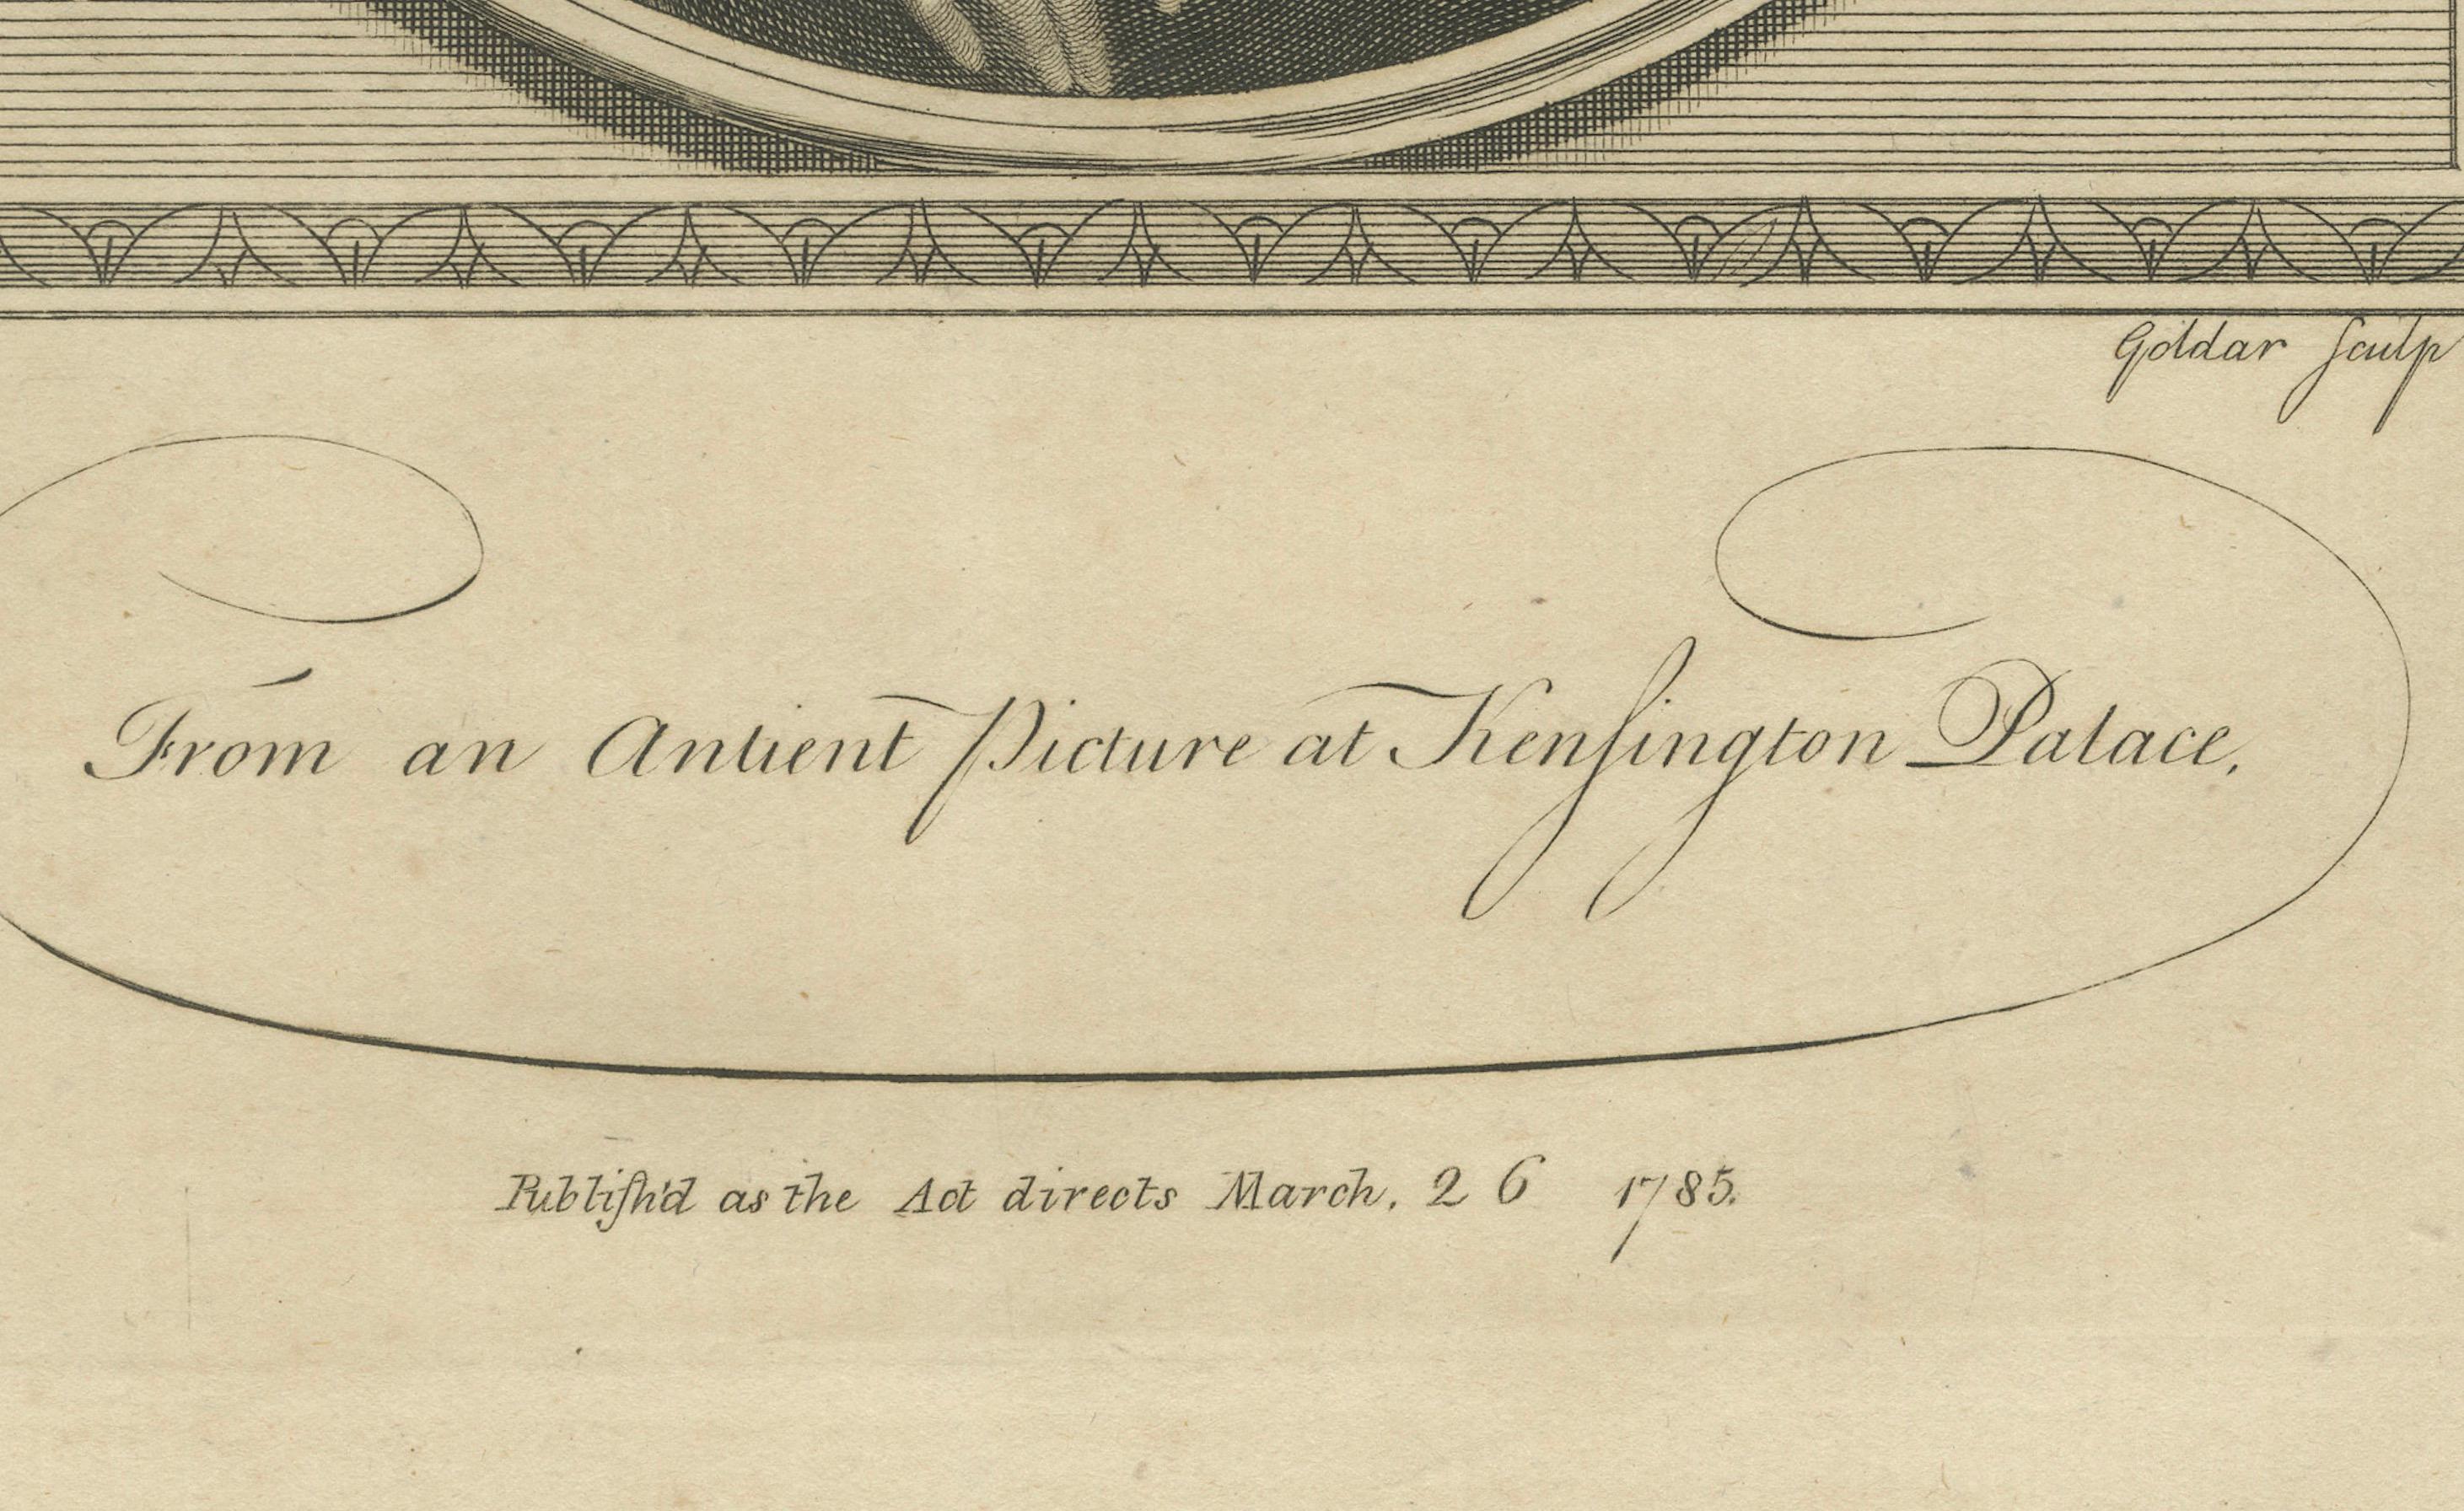 Goldar Sculp
From an Antient Picture at Kenſington Palace,
Publiſh'd as the Act directs March, 26 1785.